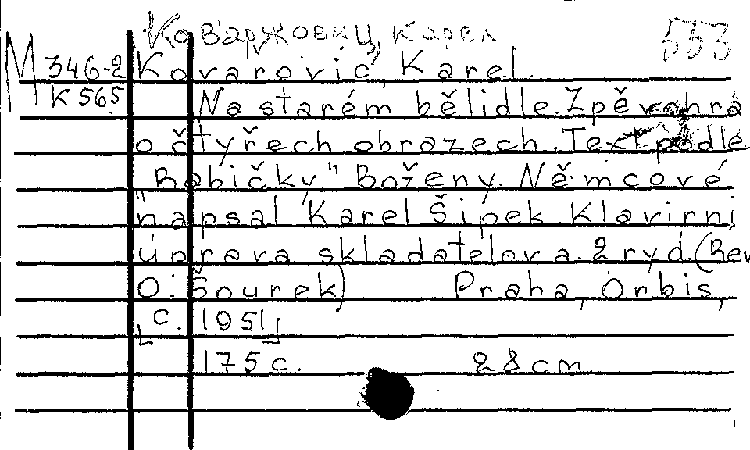 Коваржовиц, Карел 553
М 346-2 Kovařovic, Karel.
K 565 Na starém bělidle. Zpěvohra
o čtyřech obrazech. Text podle
"Babičky" Boženy Němcové
napsal Karel Šípek. Klavírní
úprava skladatelova. 2 vyd. (Rev.
O. Šourek) Praha, Orbis,
[c. 1951]
175 c. 28 cm